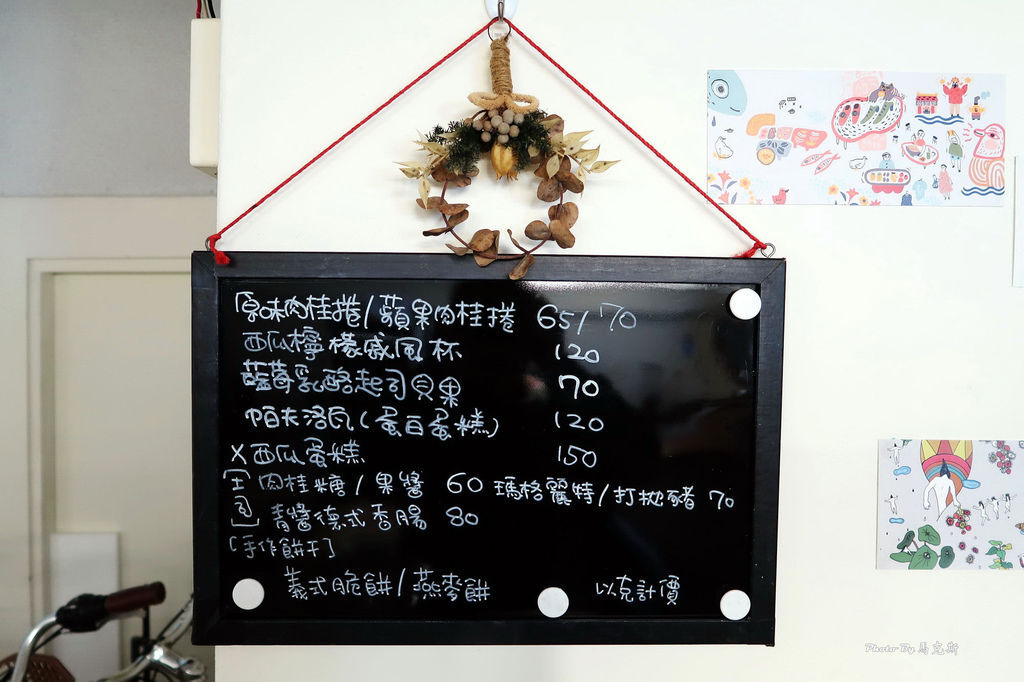 原味肉桂捲/蘋果肉桂捲 65/70
西瓜檸檬戚風杯 120
藍莓乳酪起司貝果 70
帕夫洛瓦(蛋白蛋糕) 120
X西瓜蛋糕 150
[土司] 肉桂糖/果醬 60 瑪格麗特/打拋豬 70
青醬德式香腸 80
[手作餅干]
義式脆餅/燕麥餅 以克計價
Photo By 馬克斯